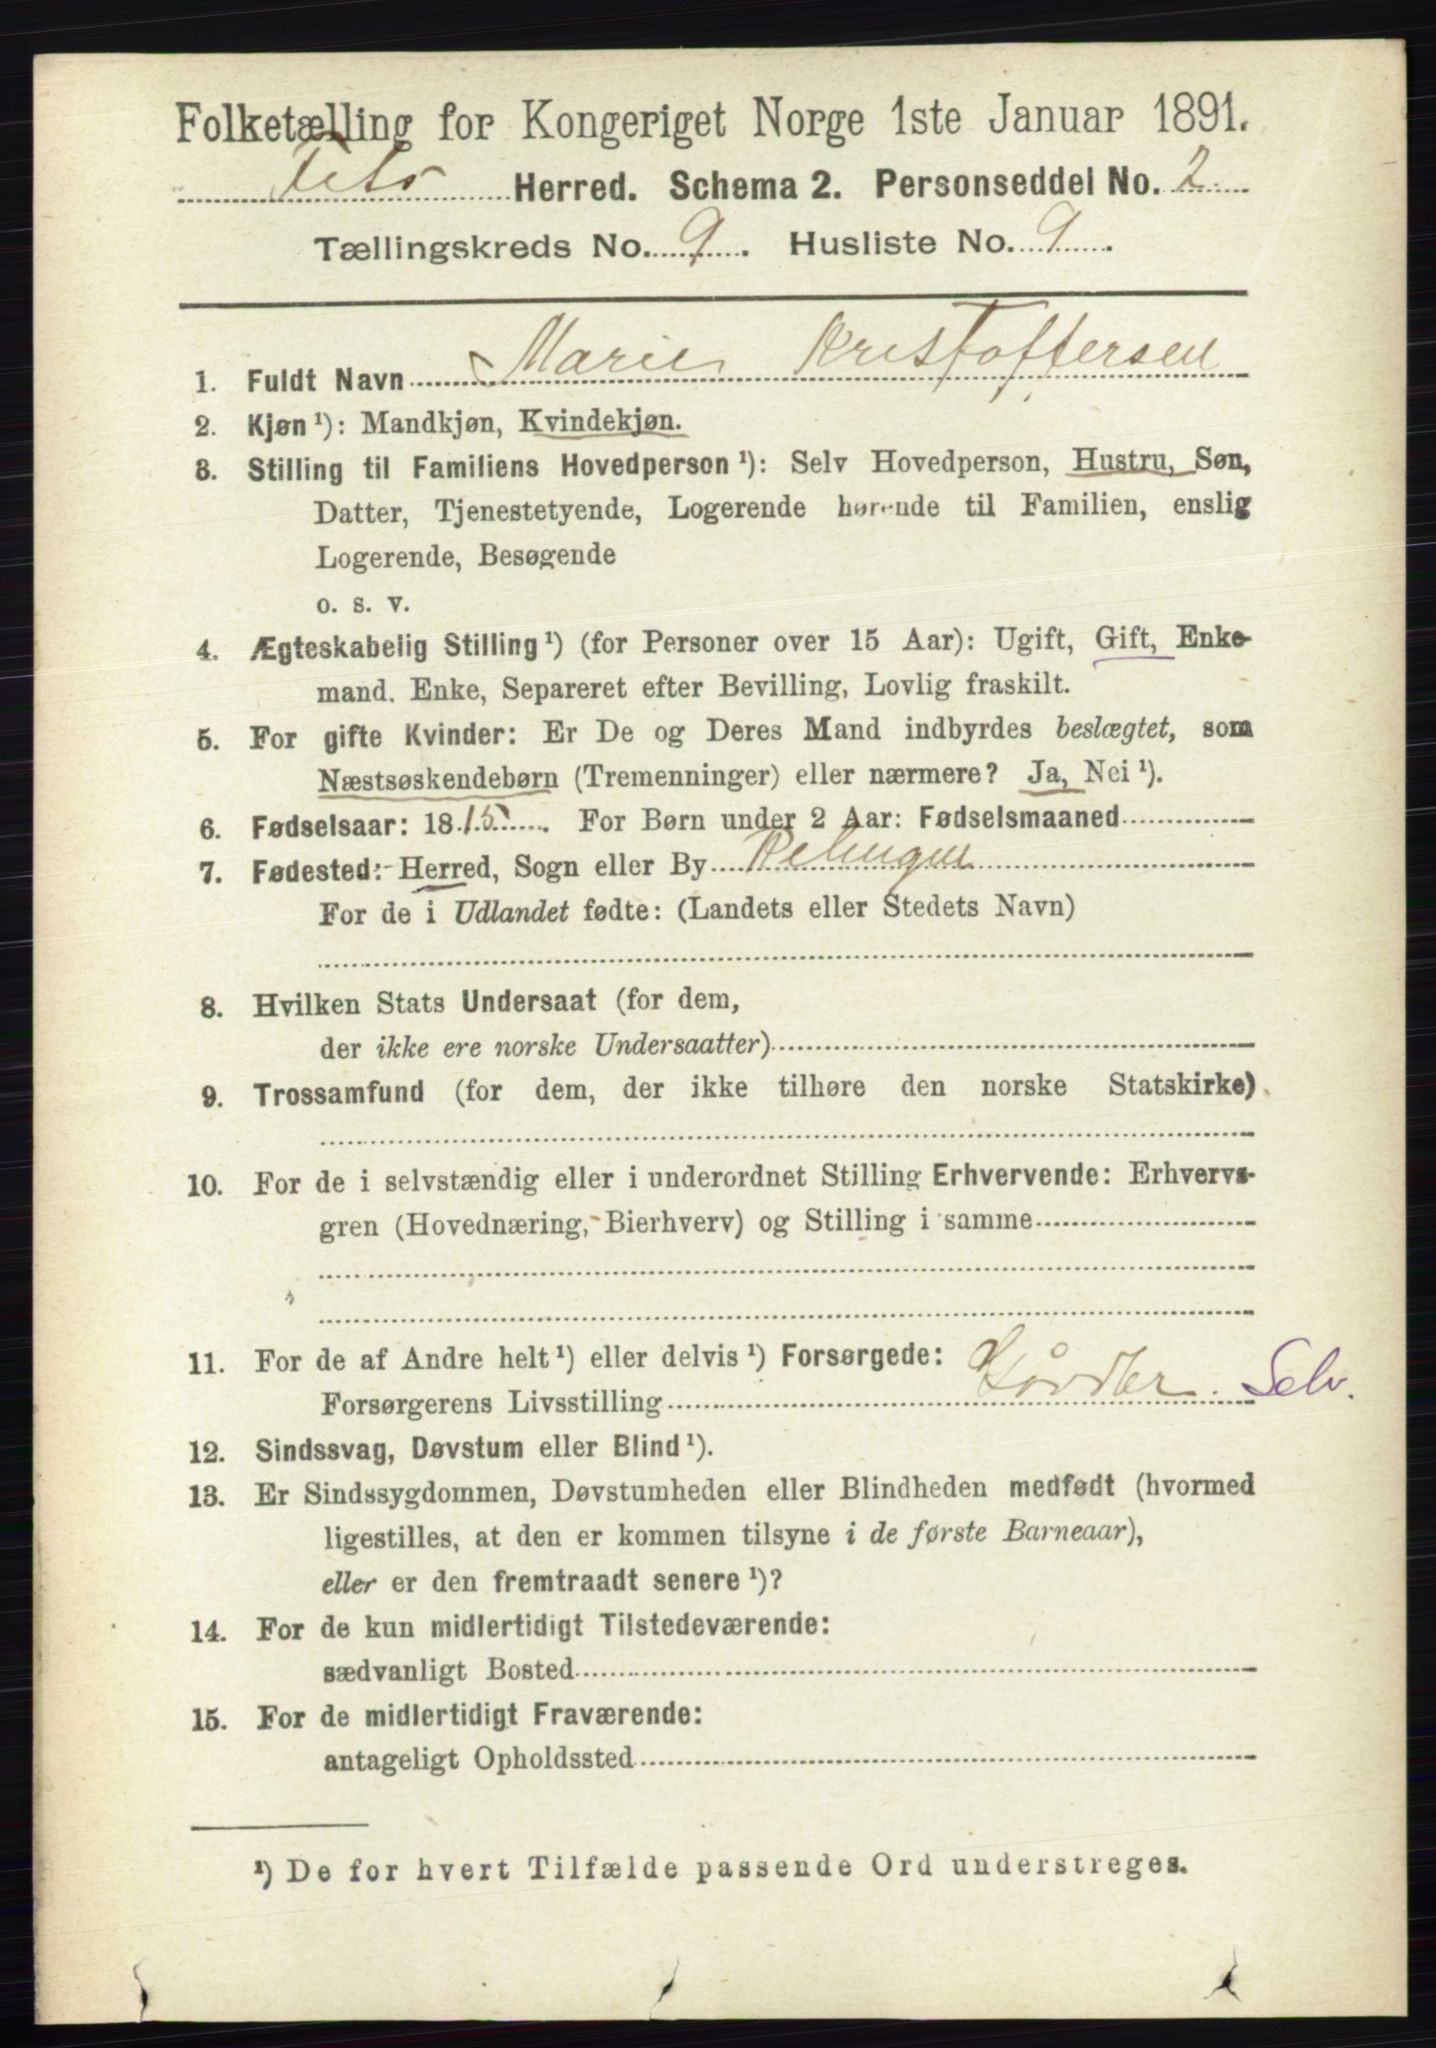 Folketælling for Kongeriget Norge 1ste Januar 1891.
Fets Herred. Schema 2. Personseddel No. 2.
Tællingskreds No. 9. Husliste No. 9.
1. Fuldt Navn Marie Kristoffersen
2. Kjøn ¹): Mandkjøn, Kvindekjøn.
3. Stilling til Familiens Hovedperson ¹): Selv Hovedperson, Hustru, Søn,
Datter, Tjenestetyende, Logerende hørende til Familien, enslig
Logerende, Besøgende
o. s. v.
4. Ægteskabelig Stilling ¹) (for Personer over 15 Aar): Ugift, Gift, Enke-
mand. Enke, Separeret efter Bevilling, Lovlig fraskilt.
5. For gifte Kvinder: Er De og Deres Mand indbyrdes beslægtet, som
Næstsøskendebørn (Tremenninger) eller nærmere? Ja, Nei ¹).
6. Fødselsaar: 1815. For Børn under 2 Aar: Fødselsmaaned
7. Fødested: Herred, Sogn eller By
For de i Udlandet fødte: (Landets eller Stedets Navn)
8. Hvilken Stats Undersaat (for dem,
der ikke ere norske Undersaatter)
9. Trossamfund (for dem, der ikke tilhøre den norske Statskirke)
10. For de i selvstændig eller i underordnet Stilling Erhvervende: Erhvervs-
gren (Hovednæring, Bierhverv) og Stilling i samme
11. For de af Andre helt ¹) eller delvis ¹) Forsørgede:
Forsørgerens Livsstilling Selv.
12. Sindssvag, Døvstum eller Blind ¹).
13. Er Sindssygdommen, Døvstumheden eller Blindheden medfødt (hvormed
ligestilles, at den er kommen tilsyne i de første Barneaar),
eller er den fremtraadt senere ¹)?
14. For de kun midlertidigt Tilstedeværende:
sædvanligt Bosted
15. For de midlertidigt Fraværende:
antageligt Opholdssted
¹) De for hvert Tilfælde passende Ord understreges.